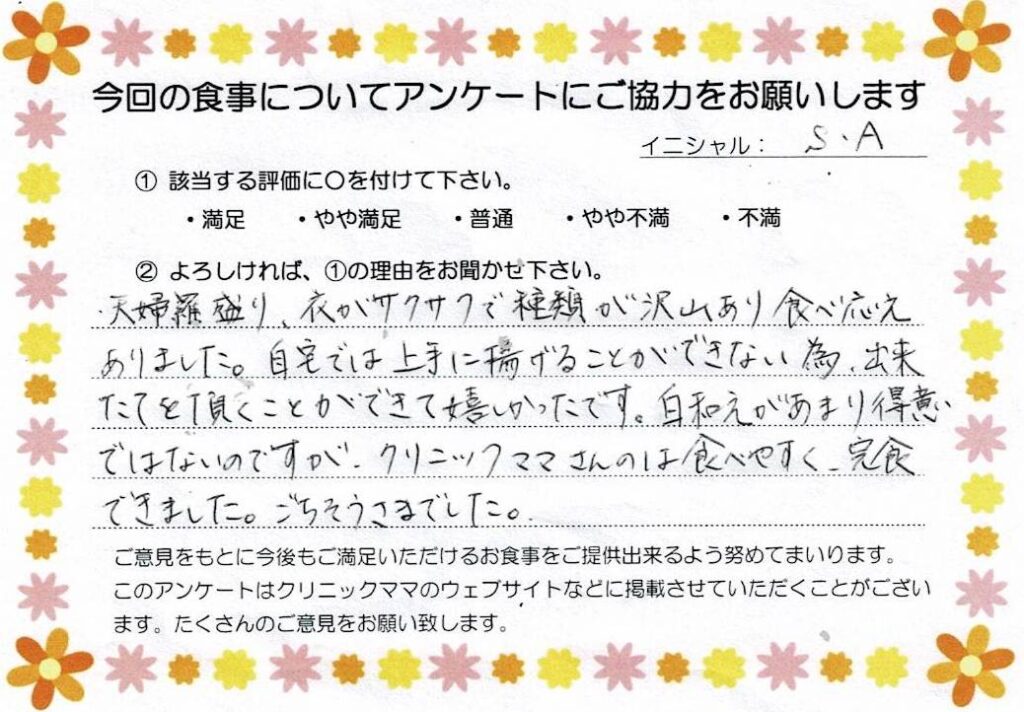 今回の食事についてアンケートにご協力をお願いします
イニシャル： S.A
① 該当する評価に〇を付けて下さい。
・満足 ・やや満足 ・普通 ・やや不満 ・不満
② よろしければ、①の理由をお聞かせ下さい。
・天婦羅盛り、衣がサクサクで種類が沢山あり食べ応え
ありました。自宅では上手に揚げることができない為、出来
たてを頂くことができて嬉しかったです。白和えがあまり得意
ではないのですが、クリニックママさんのは食べやすく、完食
できました。ごちそうさまでした。
ご意見をもとに今後もご満足いただけるお食事をご提供出来るよう努めてまいります。
このアンケートはクリニックママのウェブサイトなどに掲載させていただくことがござい
ます。たくさんのご意見をお願い致します。